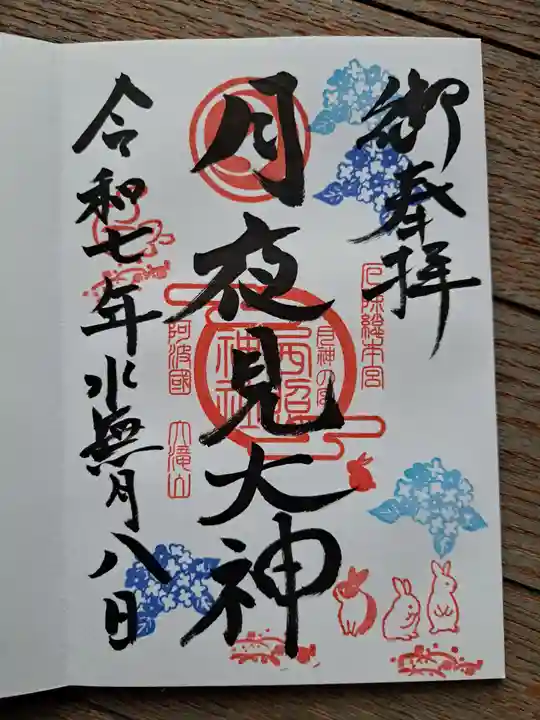 御奉拝
厄除総本宮
月夜見大神
月神の宮
西照
神社
阿波國 大滝山
令和七年水無月八日